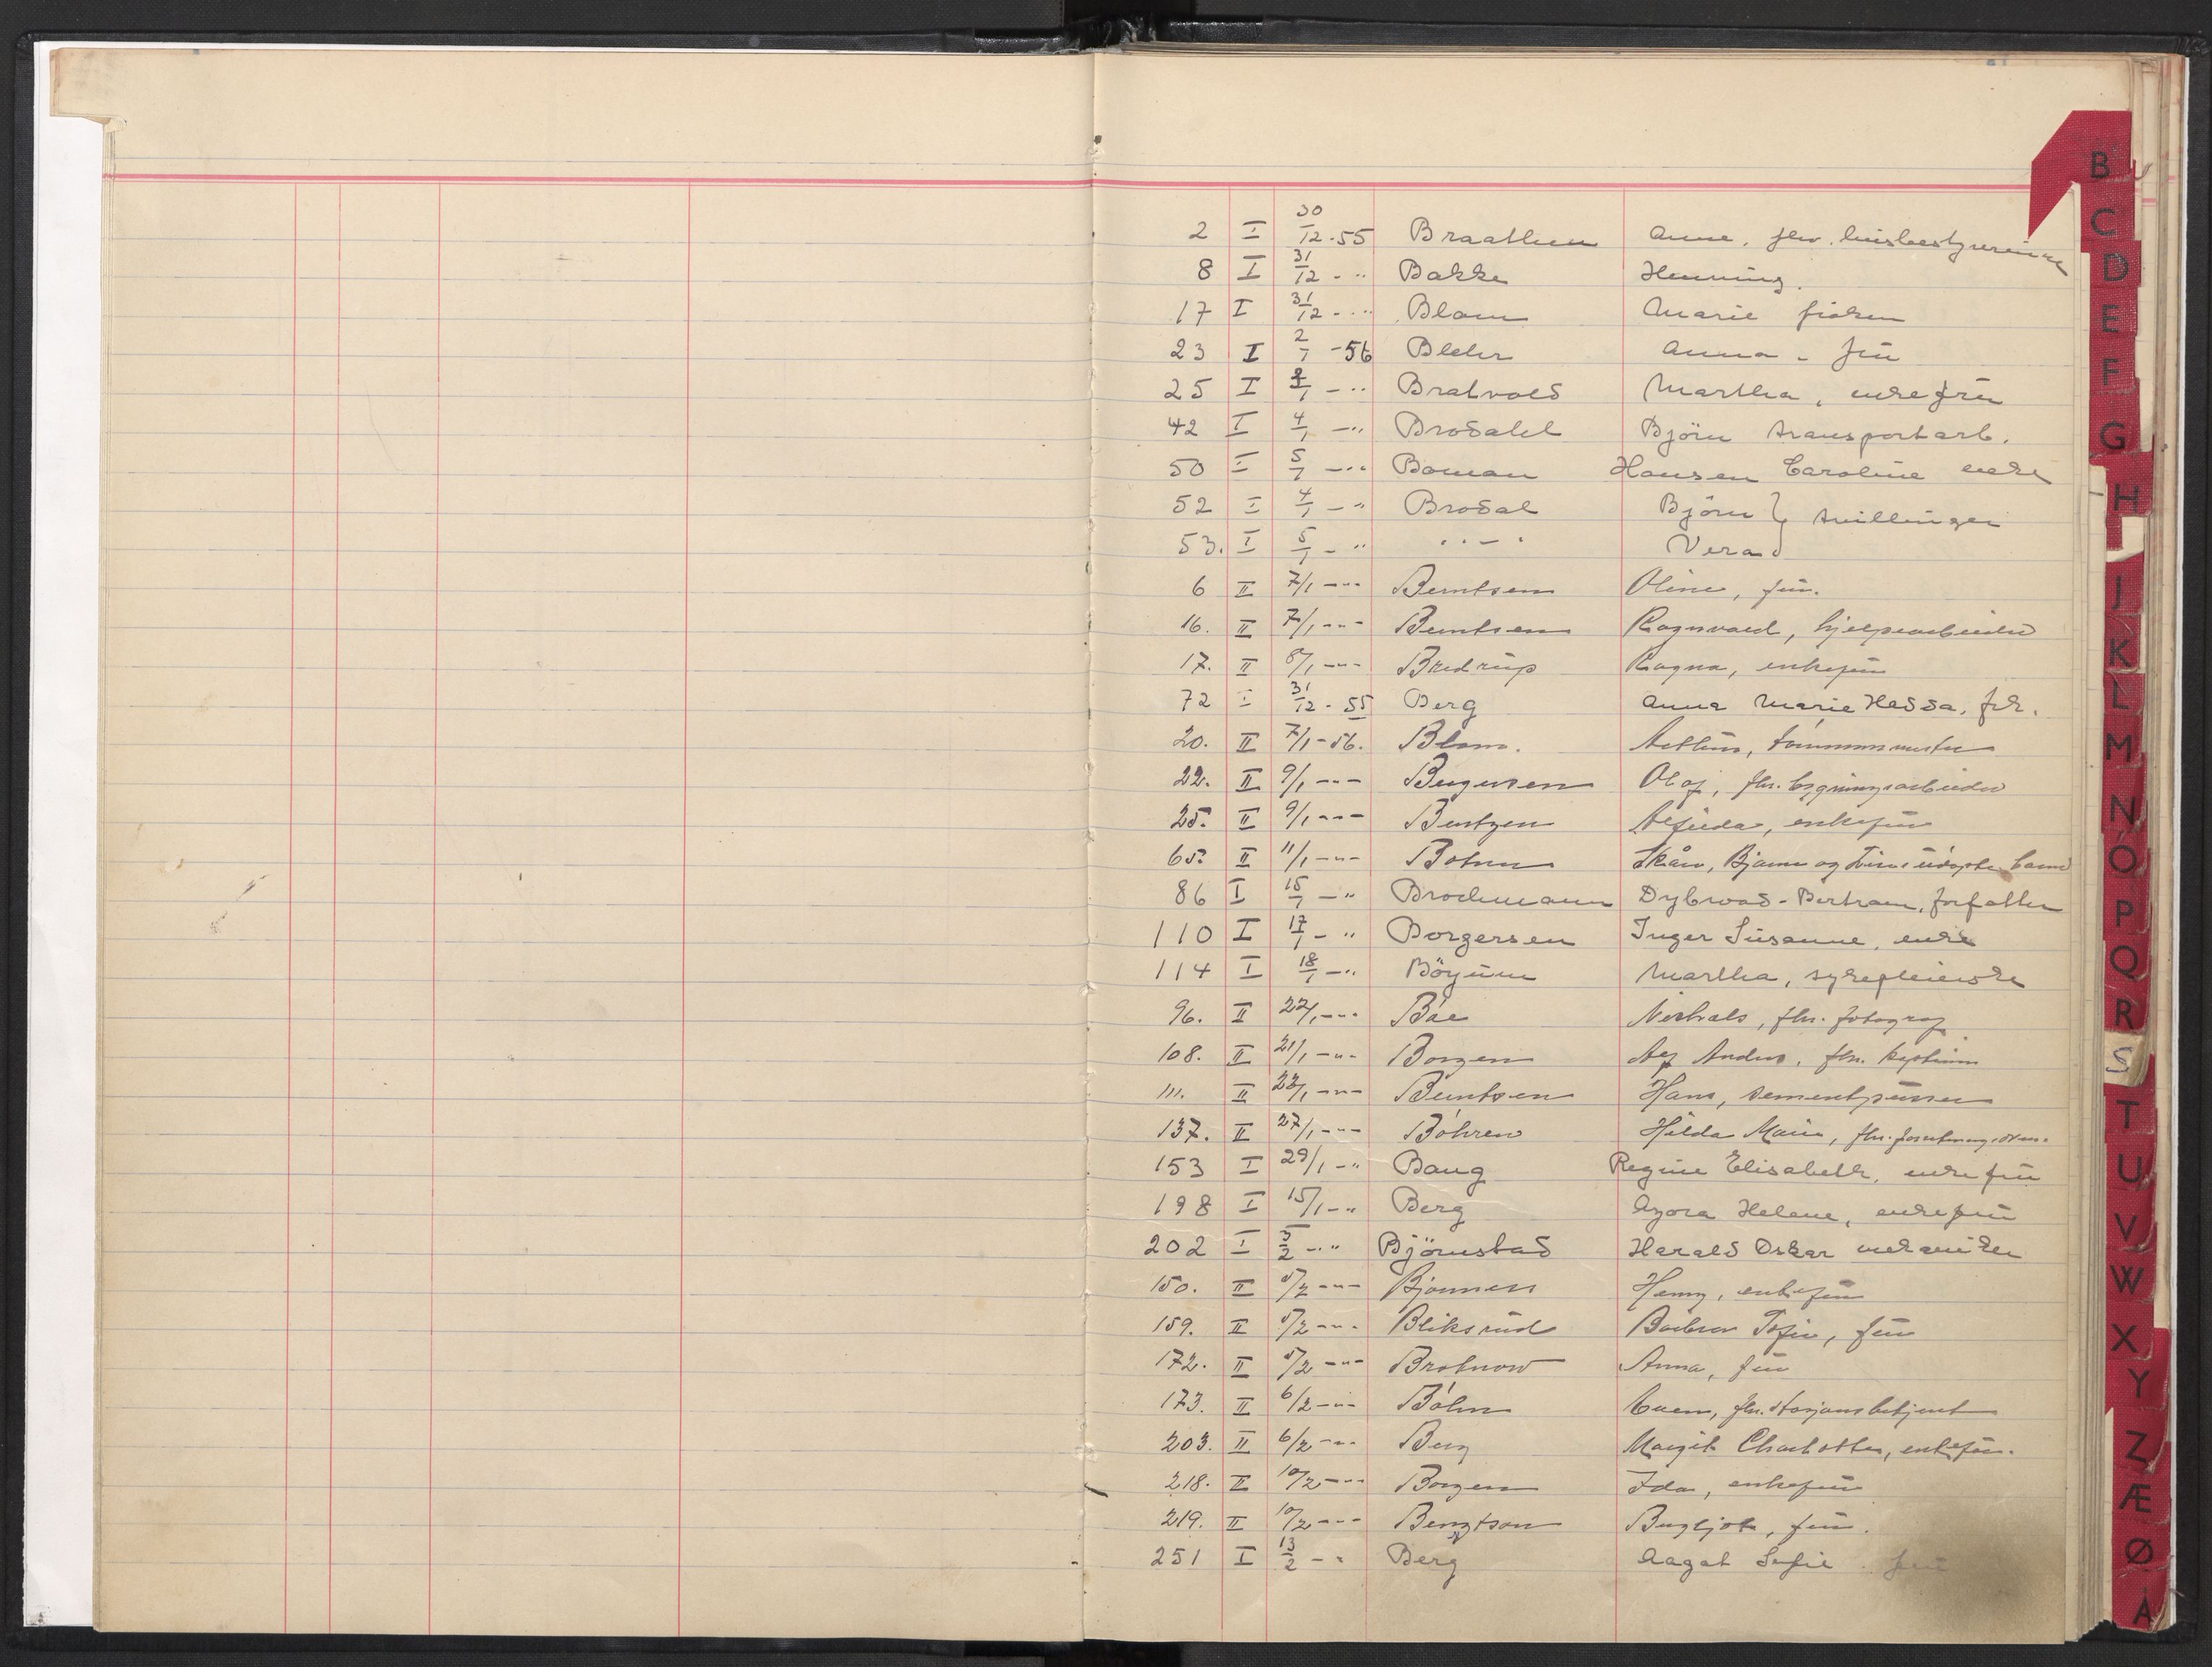 2 I 30/12-55 Braathen Anna, fhv. husbestyrerinne
8 I 31/12 - " Bakke Henning.
17 I 31/12 - " Blom Marie frøken
23 I 2/1 -56 Blehr Anna - frú
25 I 2/1 - " Bratvold Martha, enkefrú
42 I 4/1 - " Brodahl Björn transportarb.
50 I 5/1 - " Boman Hansen Caroline enke
52 I 4/1 - " Brodal Björn } tvillinger
53. I 5/1 - " " - " Vera }
6 II 7/1 - " - Berntsen Oline, frú.
16. II 7/1 - " - Berntsen Ragnvald, hjelpearbeider
17. II 8/1 - " - Bredrup Ragna, enkefrú
72 I 31/12 - 55 Berg Anna Marie Hedda, frk.
20. II 7/1-56. Blom. Arthur, tömmermester
22. II 9/1 - " - Bergersen Olaf, fhv. bygningsarbeider
25. II 9/1 - " - Berntzen Alfrida, enkefrú
65. II 11/1 - " - Botnen Bjarne og udöpte barn
86 I 15/1 - " Brochmann Dybwad-Bertram, forfatter
110 I 17/1 - " Borgersen Inger Susanne, enke
114 I 18/1 - " Böyum Martha, sykepleierske
96. II 22/1 - " - Båe Nichals, fhv. fotograf
108. II 21/1 - " - Borgen Alf Anders, fhv. kaptein
111. II 23/1 - " - Berntsen Hans, sementpusser
137. II 27/1 - " - Böhren Hilda Marie, fhv.
153 I 29/1 - " Baug Regine Elisabeth, enkefrú
198 I 15/1 - " Berg Azora Helene, enkefrú
202 I 3/2 - " Björnstad Harald Oskar mekaniker
150. II 5/2 - " - Bjonness Henny, enkefrú
159. II 5/2 - " - Bliksrud Barbra Sofie, frú
172. II 5/2 - " - Brotnow Anna, frú
173. II 6/2 - " - Böhn fhv. stasjonsbetjent
203. II 6/2 - " - Berg Margit Charlotte, enkefrú.
218. II 10/2 - " - Borgen Ida, enkefrú
219. II 10/2 - " - Bengtson Bergljot, frú.
251 I 13/2 - " Berg Aagot Sofie . frú
B
C
D
E
F
G
H
J
K
L
M
N
O
P
Q
R
S
T
U
V
W
X
Y
Z
Æ
Ø
Å